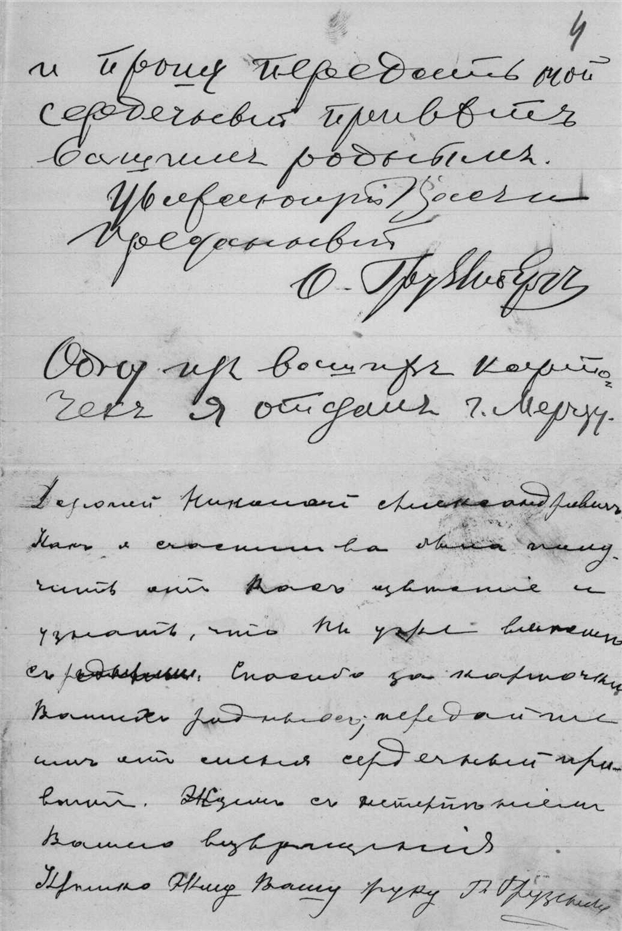 4
и прошу передать мой
сердечный привѣтъ
вашимъ роднымъ.
Уважающій Васъ и
преданный
О. Грузенбергъ
Одну изъ вашихъ карто=
чекъ я отдалъ г. Мерцу.
Дорогой Николай Александровичъ
Какъ я счастлива была полу-
чить отъ Васъ и
узнать, что Вы уже вмѣстѣ
съ родными. Спасибо за карточки
Вашихъ родныхъ; передайте
имъ отъ меня сердечный при-
вѣтъ. Ждемъ съ нетерпѣніемъ
Вашего возвращенія
Крѣпко жму Вашу руку